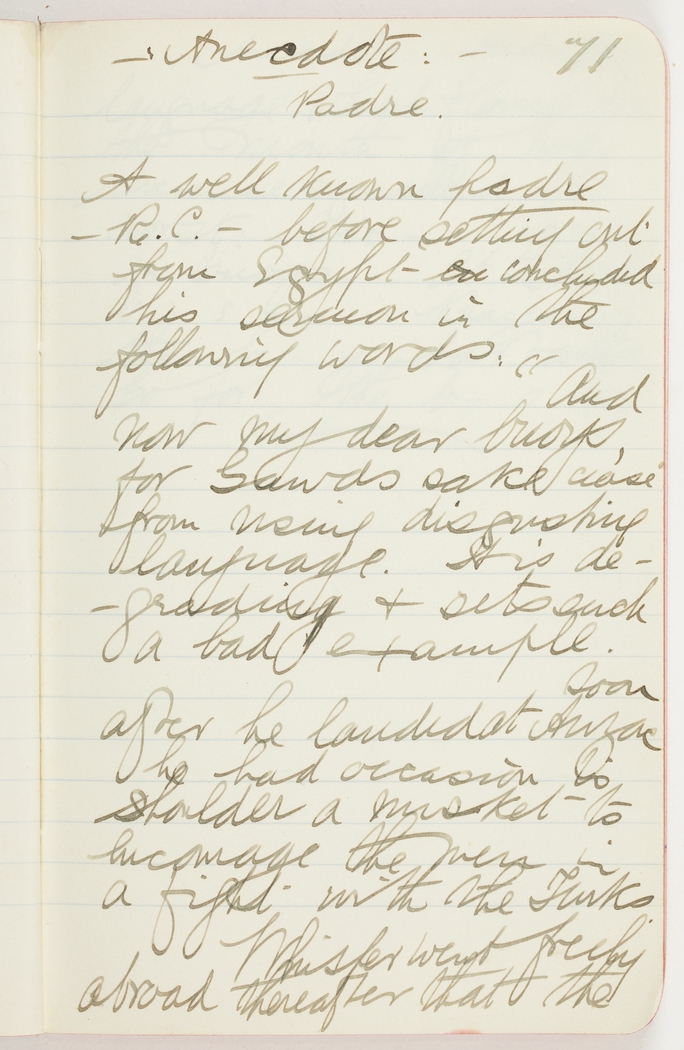 -: Anecdote: - 71
Padre.
A well known padre
- R.C. - before setting out
from Egypt - concluded
his sermon in the
following words: "And
now my dear buoys,
for Gawds sake cease
from using disgusting
language. It is de-
-grading & sets such
a bad example.
Soon
after he landed at Anzac
he had occasion to
sholder a musket to
encourage the men in
a fight with the Turks
Whisper went freely
abroad thereafter that the